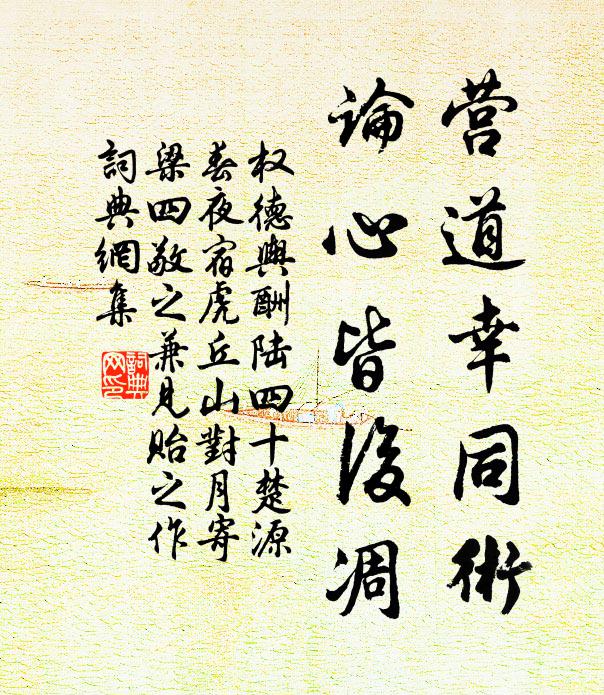 营道幸同術
論心皆後凋
权德輿酬陆四十楚源
春夜宿虎丘山對月寄
梁四敬之兼見贻之作
詞典網集
詞典网印